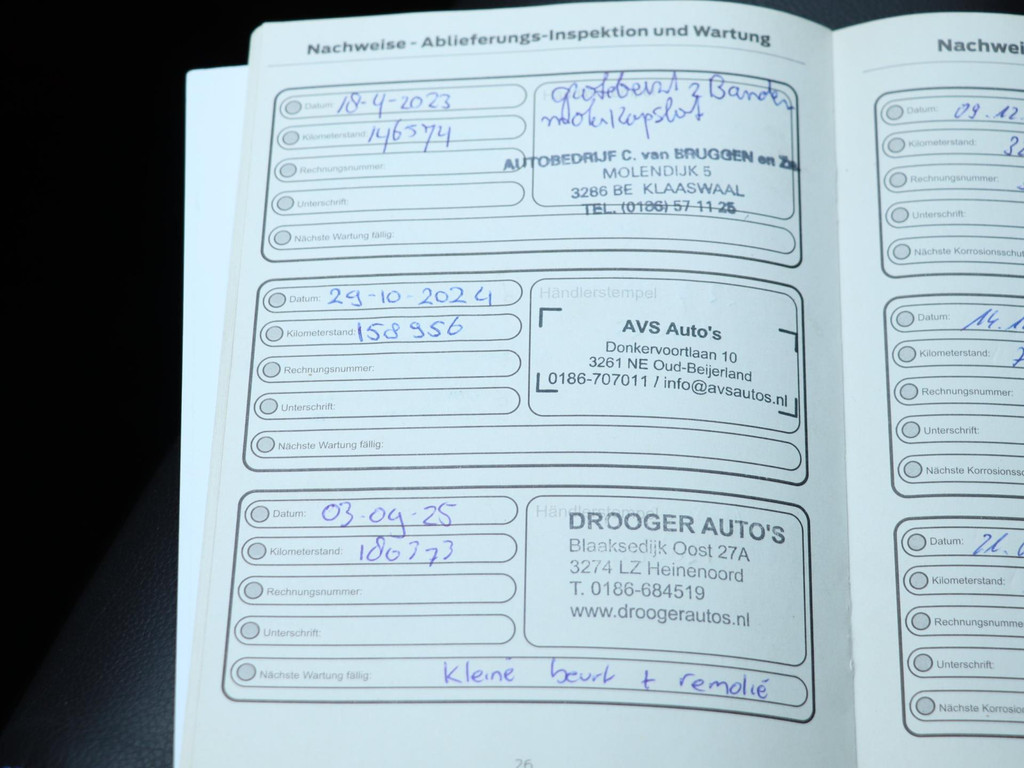 Nachweise - Ablieferungs-Inspektion und Wartung
Datum: 18-4-2023
Kilometerstand: 146574
Rechnungsnummer:
Unterschrift:
Nächste Wartung fällig:
grote beurt 2 Banden
AUTOBEDRIJF C. van BRUGGEN en Zn.
MOLENDIJK 5
3286 BE KLAASWAAL
TEL. (0186) 57 11 25
Datum: 29-10-2024
Kilometerstand: 158956
Rechnungsnummer:
Unterschrift:
Nächste Wartung fällig:
Händlerstempel
AVS Auto's
Donkervoortlaan 10
3261 NE Oud-Beijerland
0186-707011 / info@avsautos.nl
Datum: 03-09-25
Kilometerstand: 180373
Rechnungsnummer:
Unterschrift:
Nächste Wartung fällig: Kleine beurt + remolié
Händlerstempel
DROOGER AUTO'S
Blaaksedijk Oost 27A
3274 LZ Heinenoord
T. 0186-684519
www.droogerautos.nl
26
Nachwei
Datum: 09.12.
Kilometerstand:
Rechnungsnummer:
Unterschrift:
Nächste Korrosionsschu
Datum: 14.1
Kilometerstand:
Rechnungsnummer:
Unterschrift:
Nächste Korrosionss
Datum: 21.
Kilometerstand:
Rechnungsnumme
Unterschrift:
Nächste Korrosion